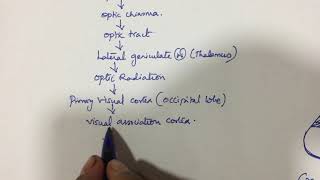 optic chiasma.
optic tract
Lateral geniculate N (Thalamus)
Optic Radiation
Primary visual cortex (occipital lobe)
visual association cortex.